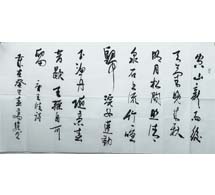 空山新雨後
天氣晚来秋
明月松間照清
泉石上流竹喧
歸浣女蓮動
下漁舟随意春
芳歇王孫自可
留 唐王維詩